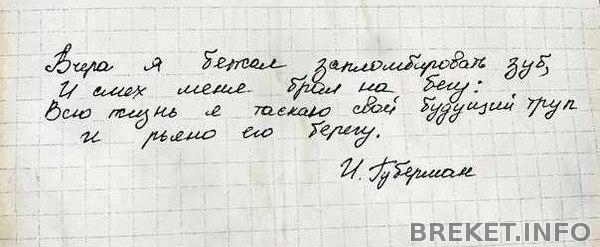 Вчера я бежал запломбировать зуб,
И смех меня брал на бегу:
Всю жизнь я таскаю свой будущий труп
и рьяно его берегу.
И. Губерман
BREKET.INFO